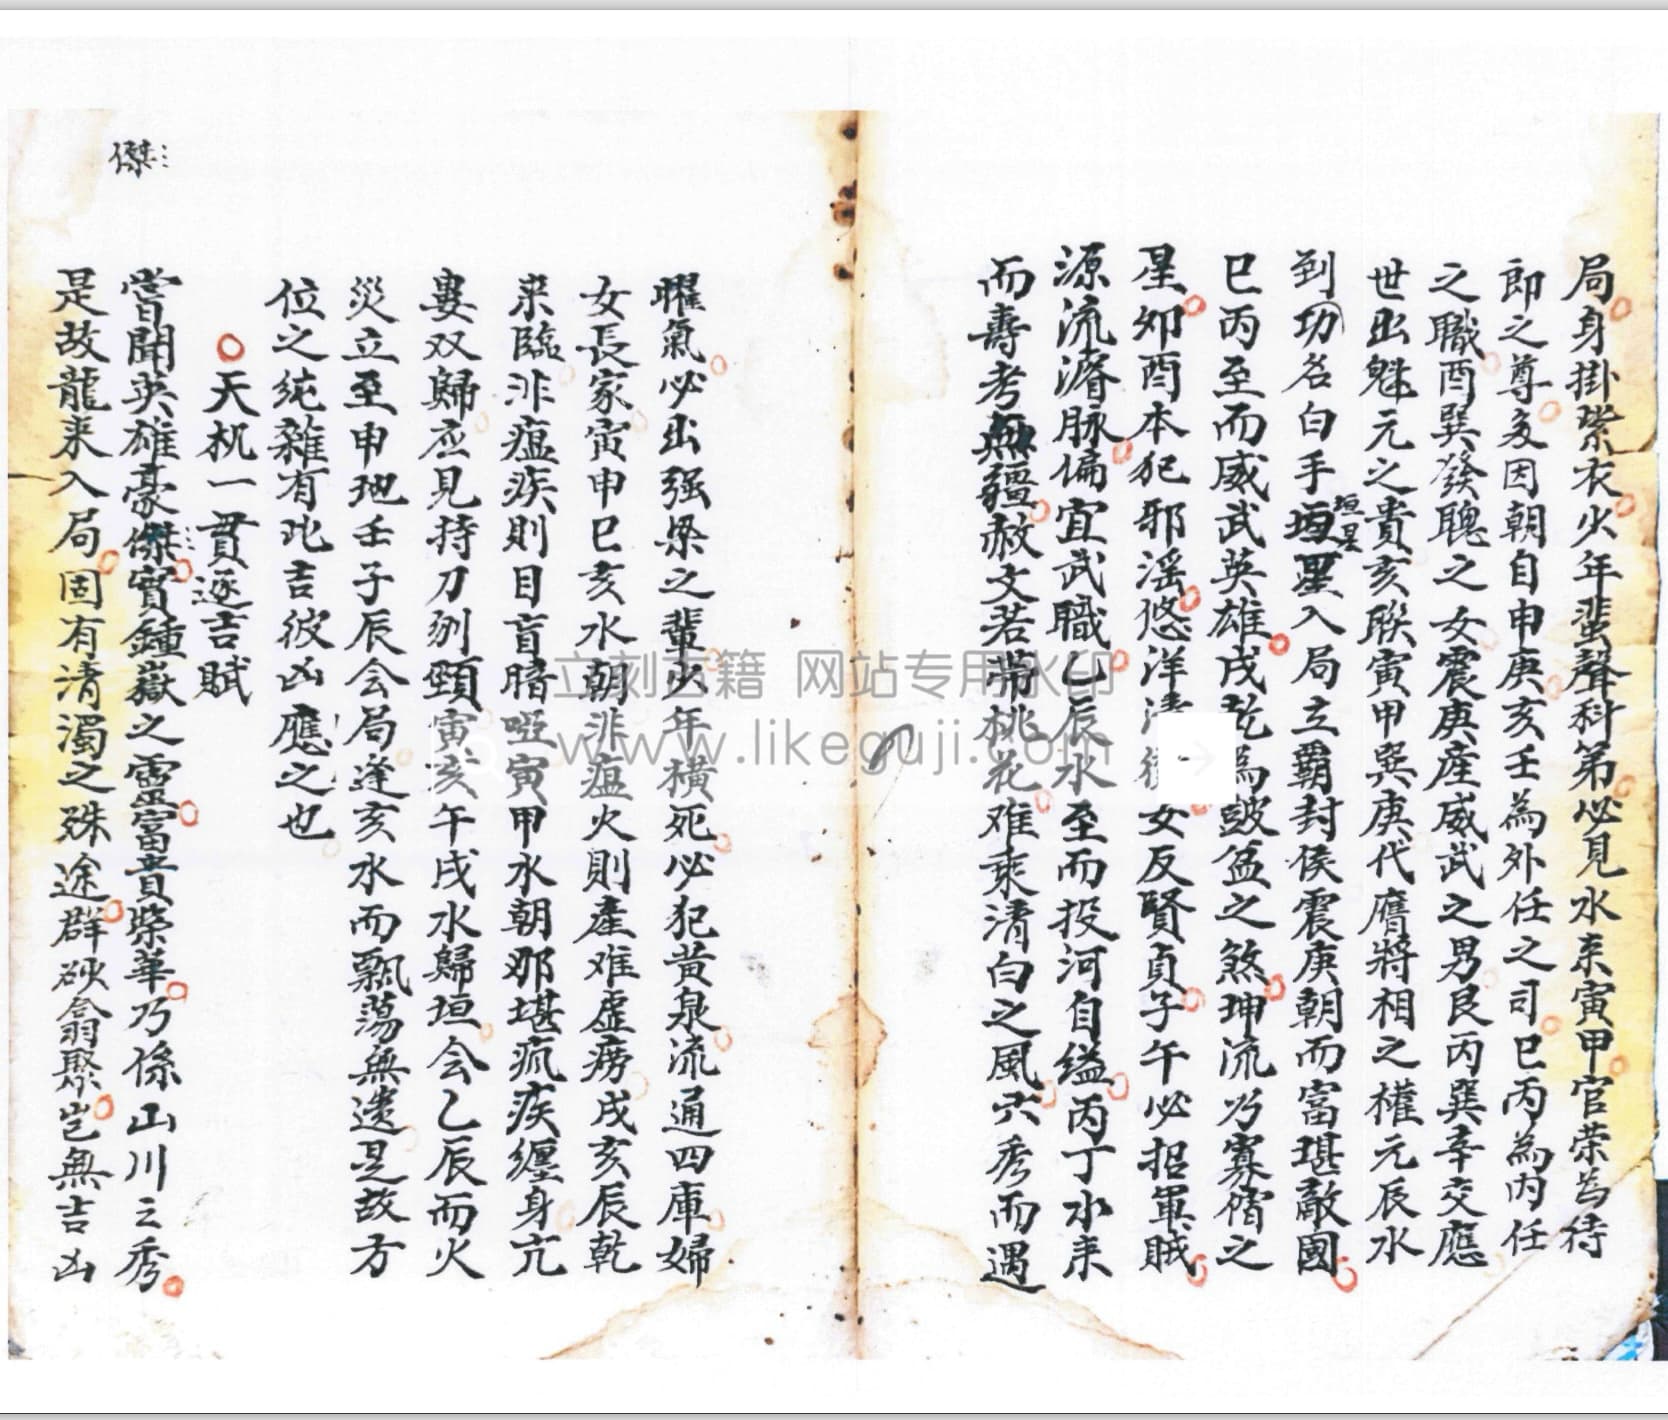 局身掛紫衣火年蜚聲科第必見水来寅甲官荣為待
即之尊亥因朝自申庚亥壬為外任之司巳丙為内任
之職酉巽發聰之女震庚産威武之男艮丙巽辛交應
世出魁元之貴亥聯寅甲巽庚代膺將相之權元辰水
到功名白手垣星入局立霸封侯震庚朝而富堪敵國
垣星
巳丙至而威武英雄戌乾為跛盆之煞坤流乃寡宿之
星夘酉本犯邪滛悠洋清 女反賢貞子午必招軍賊
源流濬脉偏宜武職乙辰水至而投河自缢丙丁水来
而壽考無疆赦文若带桃花难乘清白之風六秀而遇
曜氣必出强梁之輩火年横死必犯黄泉流通四庫婦
女長家寅申巳亥水朝非瘟火則產难虚痨戌亥辰乾
来臨非瘟疾則目盲暗啞寅甲水朝那堪瘋疾纒身亢
婁双歸应見持刀刎頸寅亥午戌水歸垣会乙辰而火
災立至申地壬子辰会局逢亥水而飄蕩無遗是故方
位之純雜有此吉彼凶應之也
天机一貫逐吉賦
嘗聞英雄豪傑實鍾嶽之靈富貴榮華乃係山川之秀
傑
是故龍来入局固有清濁之殊途群砂翕聚岂無吉凶
立刻古籍 网站专用水印
www.likeguji.com